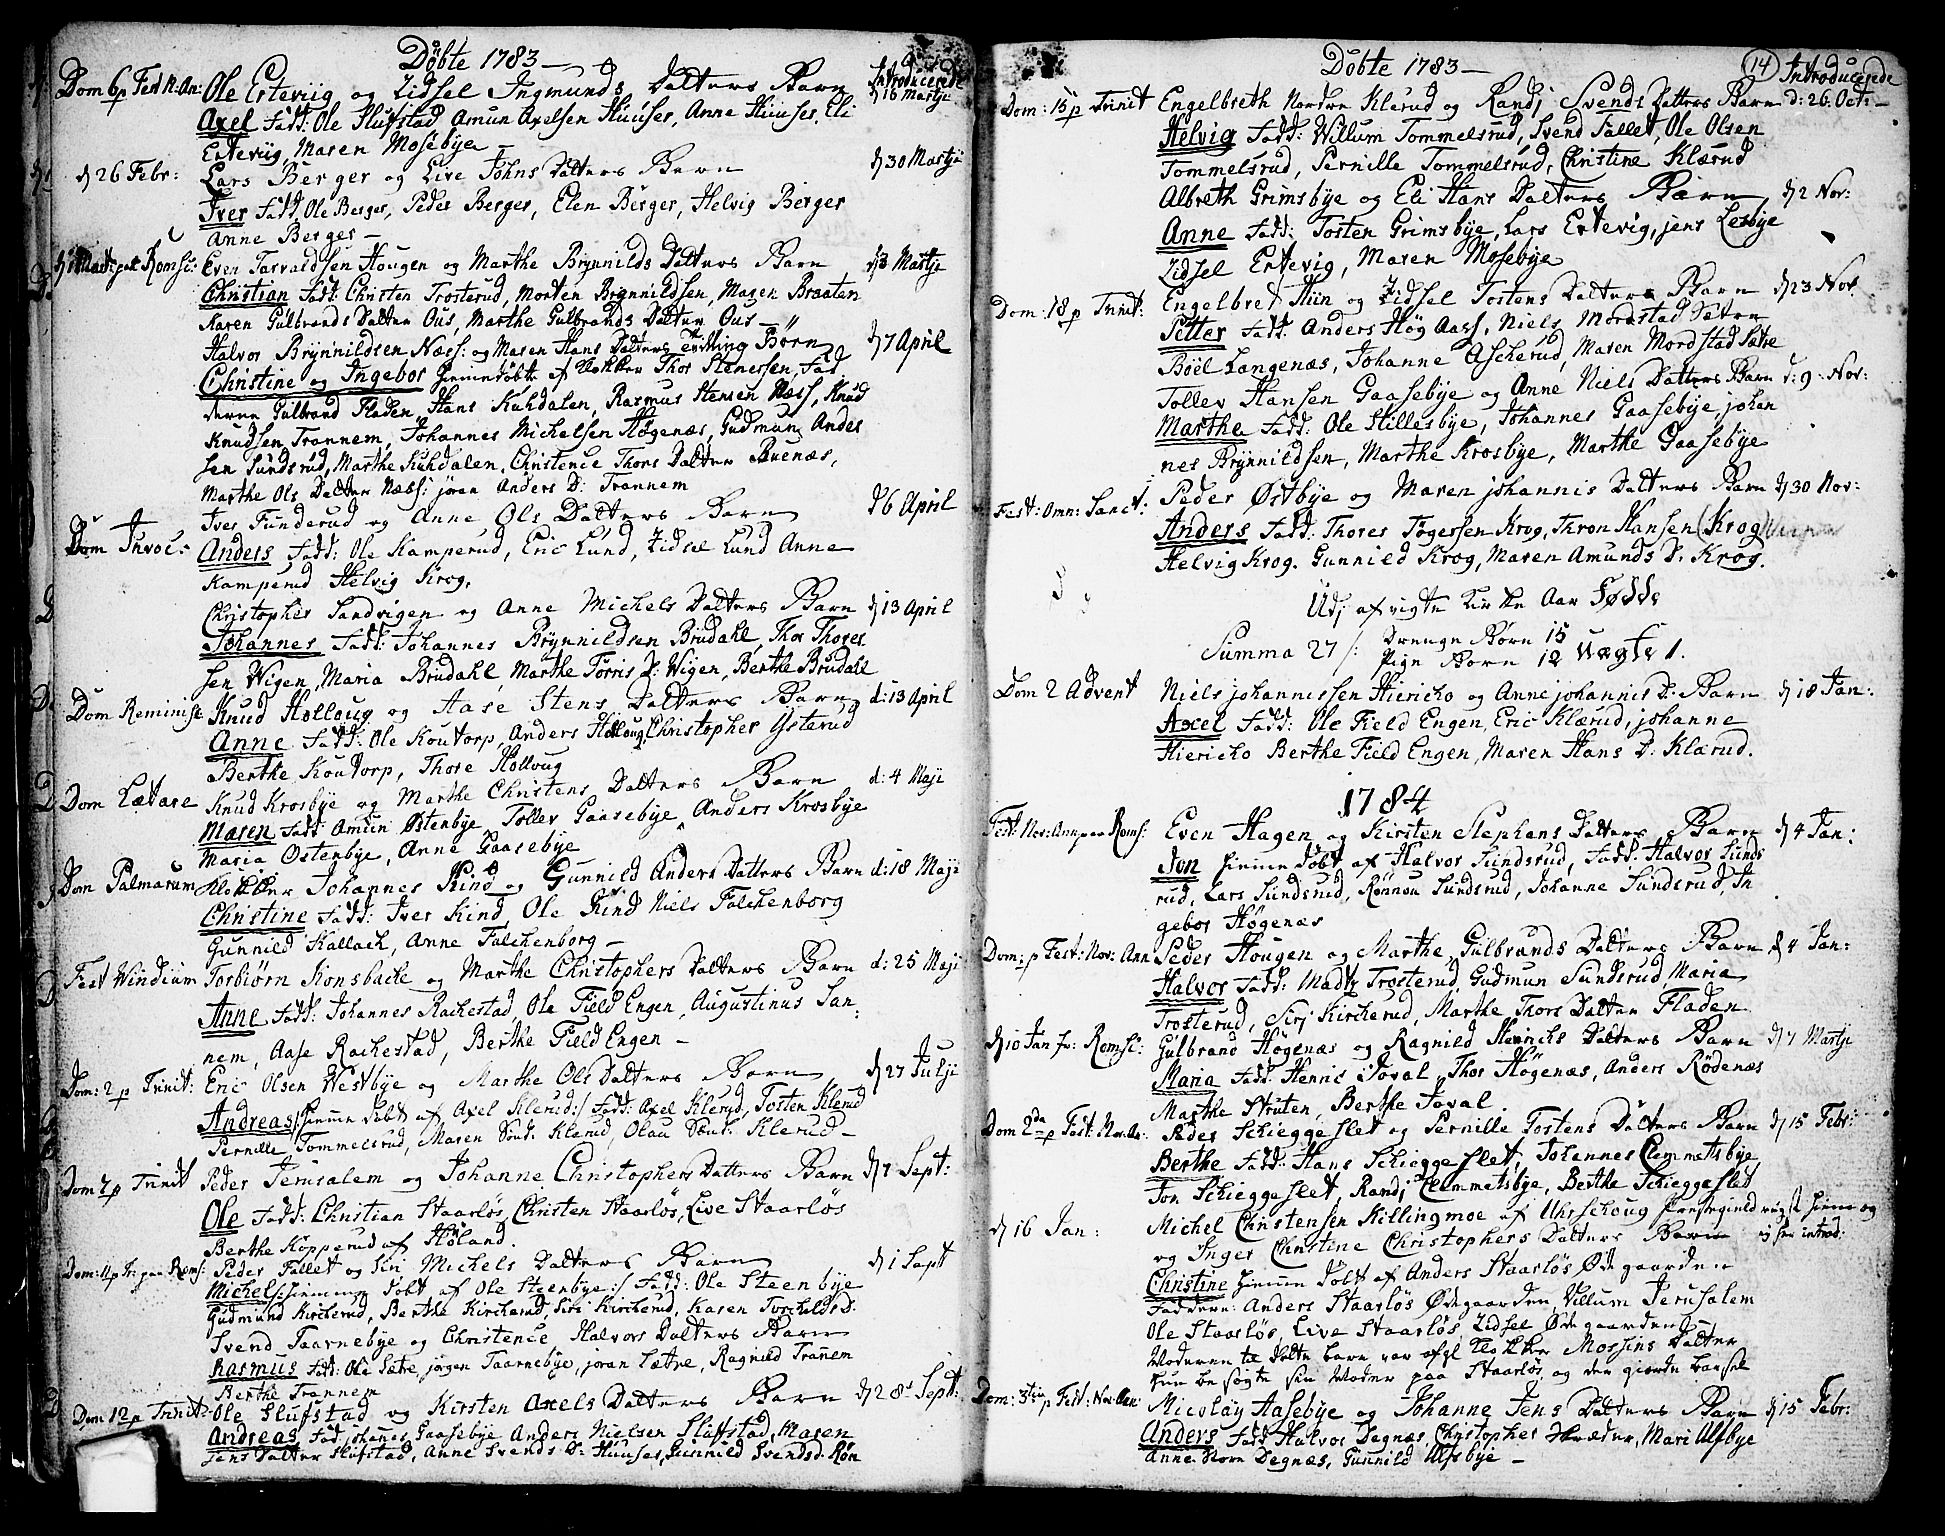 Döbte 1783
Introducerede
Dom 6 p Fest N: An: Ole Ertevüg og Zidsel Ingmunds Datters Barn d 16 Martji
Axel Fadd: Ole Slufstad Amun Axelsen Hüüser, Anne Hüüser, Eli
Ertevüg Maren Mosebye
d 26 Febr: Lars Berger og Live Johns Datters Barn d 30 Martji
Iver Fadd, Ole Berger, Peder Berger, Elen Berger, Helvig Berger
Anne Berger
Romsi: Even Tarvaldsen Hougen og Marthe Brynnilds Datters Barn d 3 Martji
Christian Fadd: Christen Trosterud, Morten Brynnildsen, Maren Braaten
Karen Gulbrands Datter Ous, Marthe Gulbrands Datter Ous
Halvor Brynnildsen Næss: og Maren Hans Datters tvilling Börn d 7 April
Christine og Ingebor hiemedöbte af Klokker Thor Stenersen, Fad
derne Gulbrand Fladen, Hans Kuhdalen, Rasmus Stensen Næss, Knud
Knudsen Trannem, Johannes Michelsen Høgenæs, Gudmun Ander
sen Sundsrud, Marthe Kuhdalen, Christence Thors Datter Buenæs,
Marthe Ols Datter Næbs: jøren Anders D: Trannem
Iver Funderud og Anne Ols Datters Barn d 6 April
Dom Invoc: Anders Fadd: Ole Kamperud, Eric Lund, Zidsel Lund Anne
Kamperud Helvig Krog.
Christopher Sandvigen og Anne Michels Datters Barn d 13 April
Johannes Fadd: Johannes Brynnildsen Brudahl, Thor Thorer
sen Wigen, Maria Brudahl Marthe Torris D: Wigen, Berthe Brudahl
Dom Reminise Knud Holloug og Aase Stens Datters Barn d: 13 April
Anne Fadd: Ole Koutorp, Anders Holloug, Christopher Ysterud
Berthe Koutorp, Thore Holloug
Dom Lætare Knud Krosbye og Marthe Christens Datters Barn d: 4 Maji
Maren Fadd: Amun Østenbye, Tollev Gaasebye, Anders Krosbye
Maria Ostenbye, Anne Gaasebye
Dom Palmarum Klokker Johannes Kind og Gunnild Anders Datters Barn d: 18 Maji
Christine Fadd: Iver Kind, Ole Kind Niels Falchenborg
Gunnild Kallach, Anne Falchenborg
Fest Windium Torbiørn Kionsbacke og Marthe Christophers Datters Barn d: 25 Maji
Anne Fadd: Johannes Rackestad, Ole Field Engen, Augustinus San
nem, Aase Rackestad, Berthe Field Engen
Dom: 2 p Trinit: Eric Olsen Westbye og Marthe Ols Datters Barn d 27 Julji
Andreas /:hiemme Döbt af Axel Klerud:/ Fadd: Axel Klerud, Tosten Klerud
Pernille Tommelsrud, Maren Klerud, Olau Klerud
Dom 7 p Trinit Peder Jerusalem og Johanne Christophers Datters Barn d 7 Sept:
Ole Fadd: Christian Staarløs, Christen Staarløs, Live Staarløs
Berthe Kopperud af Høland.
Dom: 11 p Tr: paa Roms: Peder Fallet og Siri Michels Datters Barn d 1 Sept
Michel /:hiemme Döbt af Ole Steenbye:/ Fadd: Ole Steenbye
Gudmund Kircherud, Berthe Kircherud, Siri Kircherud, Karen Torchelds D.
Svend Taarnebye og Christence Halvors Datters Barn
Rasmus Fad: Ole Sætre, jørgen Taarnebye, joran Sætre, Ragnild Trannem
Berthe Trannem
Dom 12 p Trinit: Ole Slufstad og Kirsten Axels Datters Barn d 28 Sept:
Andreas Fad: johannes Gaasebye Anders Nielsen Sluffstad, Maren
Jens Datter Slufstad, Anne Svends D: Huuser, Gunnild Svends d. Røn
Döbte 1783
14 Introducerede
Dom: 15 p Trinit Engelbreth Nordre Klerud og Randj Svends Datters Barn d: 26. Oct:
Helvig Fadd: Willum Tommelsrud, Svend Fallet, Ole Olsen
Tommelsrud, Pernille Tommelsrud, Christine Klærud
Albreth Grimsbye og Eli Hans Datters Barn d 2 Nov:
Anne Fadd: Tosten Grimsbye, Lars Ertevig, jens Lesbye
Zidsel Ertevig, Maren Mosebye
Dom: 18 p Trinit: Engelbret Hün og Zidsel Tostens Datters Barn d 23 Nov
Petter Fadd: Anders Høg Aass, Niels Mordstad Sætre
Boel Langenæs, Johanne Ascherud, Maren Mordstad Sætre
Tollev Hansen Gaasebye og Anne Niels Datters Barn d: 9 Nov:
Marthe Fadd: Ole Stillesbye, Johannes Gaasebye, johan
nes Brynnildsen, Marthe Krosbye, Marthe Gaasebye
Fest: Omn: Sanct: Peder Østbye og Maren johannis Datters Barn d 30 Nov:
Anders Fadd: Thores Togersen Krog, Thron Hansen (Krog)
Helvig Krog. Gunnild Krog, Maren Amunds D: Krog.
Udj afvigte Kirke Aar Fødde
Summa 27 /: Drenge Børn 15
Pige Børn 12 Uægte 1.
Dom 2 Advent Niels johannissen Hiericho og Anne johannis D: Barn d 18 Jan:
Axel Fadd: Ole Field Engen, Eric Klærud, johanne
Hiericho Berthe Field Engen, Maren Hans D: Klærud.
1784
Fest: Nov: Ann paa Roms: Even Hagen og Kirsten Stephans Datters Barn d 4 Jan:
Jon hiemme döbt af Halvor Sundsrud, Fadd: Halvor Sunds
rud, Lars Sundsrud, Rønnou Sundsrud, Johanne Sundsrud, In
gebor Høgenæs
Dom: p Fest: Nov: Ann Peder Hougen og Marthe Gulbrands Datters Barn d 4 Jan:
Halvor Fadd: Madtz Trosterud, Gudmun Sundsrud, Maria
Trosterud, Sirj Kircherud, Marthe Thors Datter Fladen
d 10 Jan Romsi: Gulbrand Høgenæs og Ragnild Henrichs Datters Barn d 7 Martji
Maria Fadd: Henric Joval, Thor Høgenæs, Anders Rødenæs
Marthe Struten, Berthe Joval
Dom 2da p Fest: Nov: An: Peder Schieggeslet og Pernille Tostens Datters Barn d 15 Febr:
Berthe Fadd: Hans Schieggeslet, Johannes Clemmetsbye
Jon Schieggeslet, Randj Clemmetsbye, Berthe Schieggeslet
d 16 Jan: Michel Christensen Killingmoe af Uhrschoug
og Inger Christine Christophers Datters Barn
Christine hiemme döbt af Anders Staarløs Ødegaarden
Faddere: Anders Staarløs Ødegaarden, Villum Jerusalem
Ole Staarløs, Live Staarløs, Zidsel Ødegaarden
Moderen til dette barn var afgl Klokker Mossins Datter
hun besøgte sin Moder paa Staarløs, og der giorde barsel
Dom: 3tia p Fest: Nov: Ann: Nicolay Aasebye og Johanne Jens Datters Barn d 15 Febr:
Anders Fadd: Halvor Degnæs, Christopher Skræder, Mari Alfbye
Anne Degnæs, Gunnild Ulfsbye